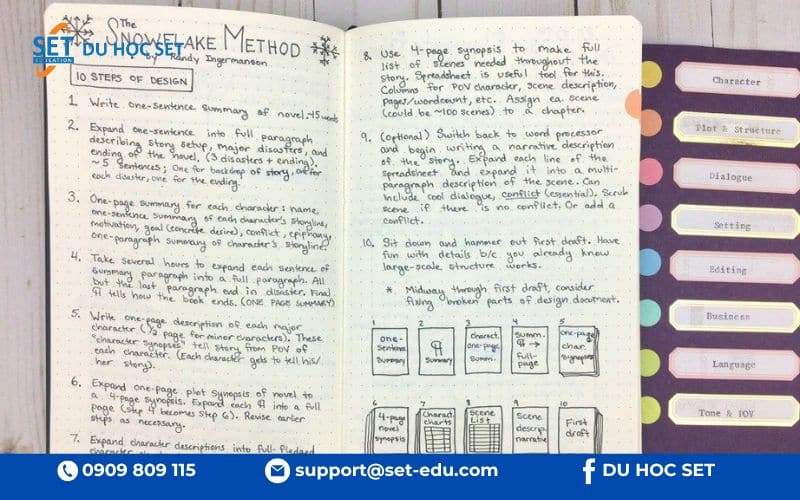 The
SNOWFLAKE METHOD
By Randy Ingermanson
SET DU HỌC SET
EDUCATION
10 STEPS OF DESIGN
1. Write one-sentence summary of novel. ~15 words
2. Expand one-sentence into full paragraph
describing story setup, major disasters, and
ending of the novel. (3 disasters + ending).
~5 sentences; One for backdrop of story, one for
each disaster, one for the ending.
3. One-page summary for each character: name,
one-sentence summary of each character's storyline,
motivation, goal (concrete desire), conflict, epiphany,
one-paragraph summary of character's storyline.
4. Take several hours to expand each sentence of
summary paragraph into a full paragraph. All
but the last paragraph end in disaster. Final
¶ tells how the book ends. (ONE PAGE SUMMARY)
5. Write one-page description of each major
character (½ page for minor characters). These
"character synopses" tell story from POV of
each character. (Each character gets to tell his/
her story).
6. Expand one-page plot synopsis of novel to
a 4-page synopsis. Expand each ¶ into a full
page (Step 4 becomes Step 6). Revise earlier
steps as necessary.
7. Expand character descriptions into full-fledged
8. Use 4-page synopsis to make full
list of scenes needed throughout the
story. Spreadsheet is useful tool for this.
Columns for POV character, scene description,
pages/wordcount, etc. Assign ea. scene
(could be ~100 scenes) to a chapter.
9. (optional) Switch back to word processor
and begin writing a narrative description
of the story. Expand each line of the
spreadsheet and expand it into a multi-
paragraph description of the scene. Can
include cool dialogue, conflict (essential). Scrub
scene if there is no conflict. Or add a
conflict.
10. Sit down and hammer out first draft. Have
fun with details b/c you already know
large-scale structure works.
* Midway through first draft, consider
fixing broken parts of design document.
1
one-
sentence
Summary
2
¶
Summary
3
charact.
one-page
Summ.
4
Summ.
¶ →
full-
page
5
one-page
char.
synopses
6
4-page
novel
synopsis
7
Charact
charts
8
Scene
List
9
Scene
descrip.
narrative
10
First
draft
Character
Plot & Structure
Dialogue
Setting
Editing
Business
Language
Tone & POV
0909 809 115
support@set-edu.com
DU HOC SET